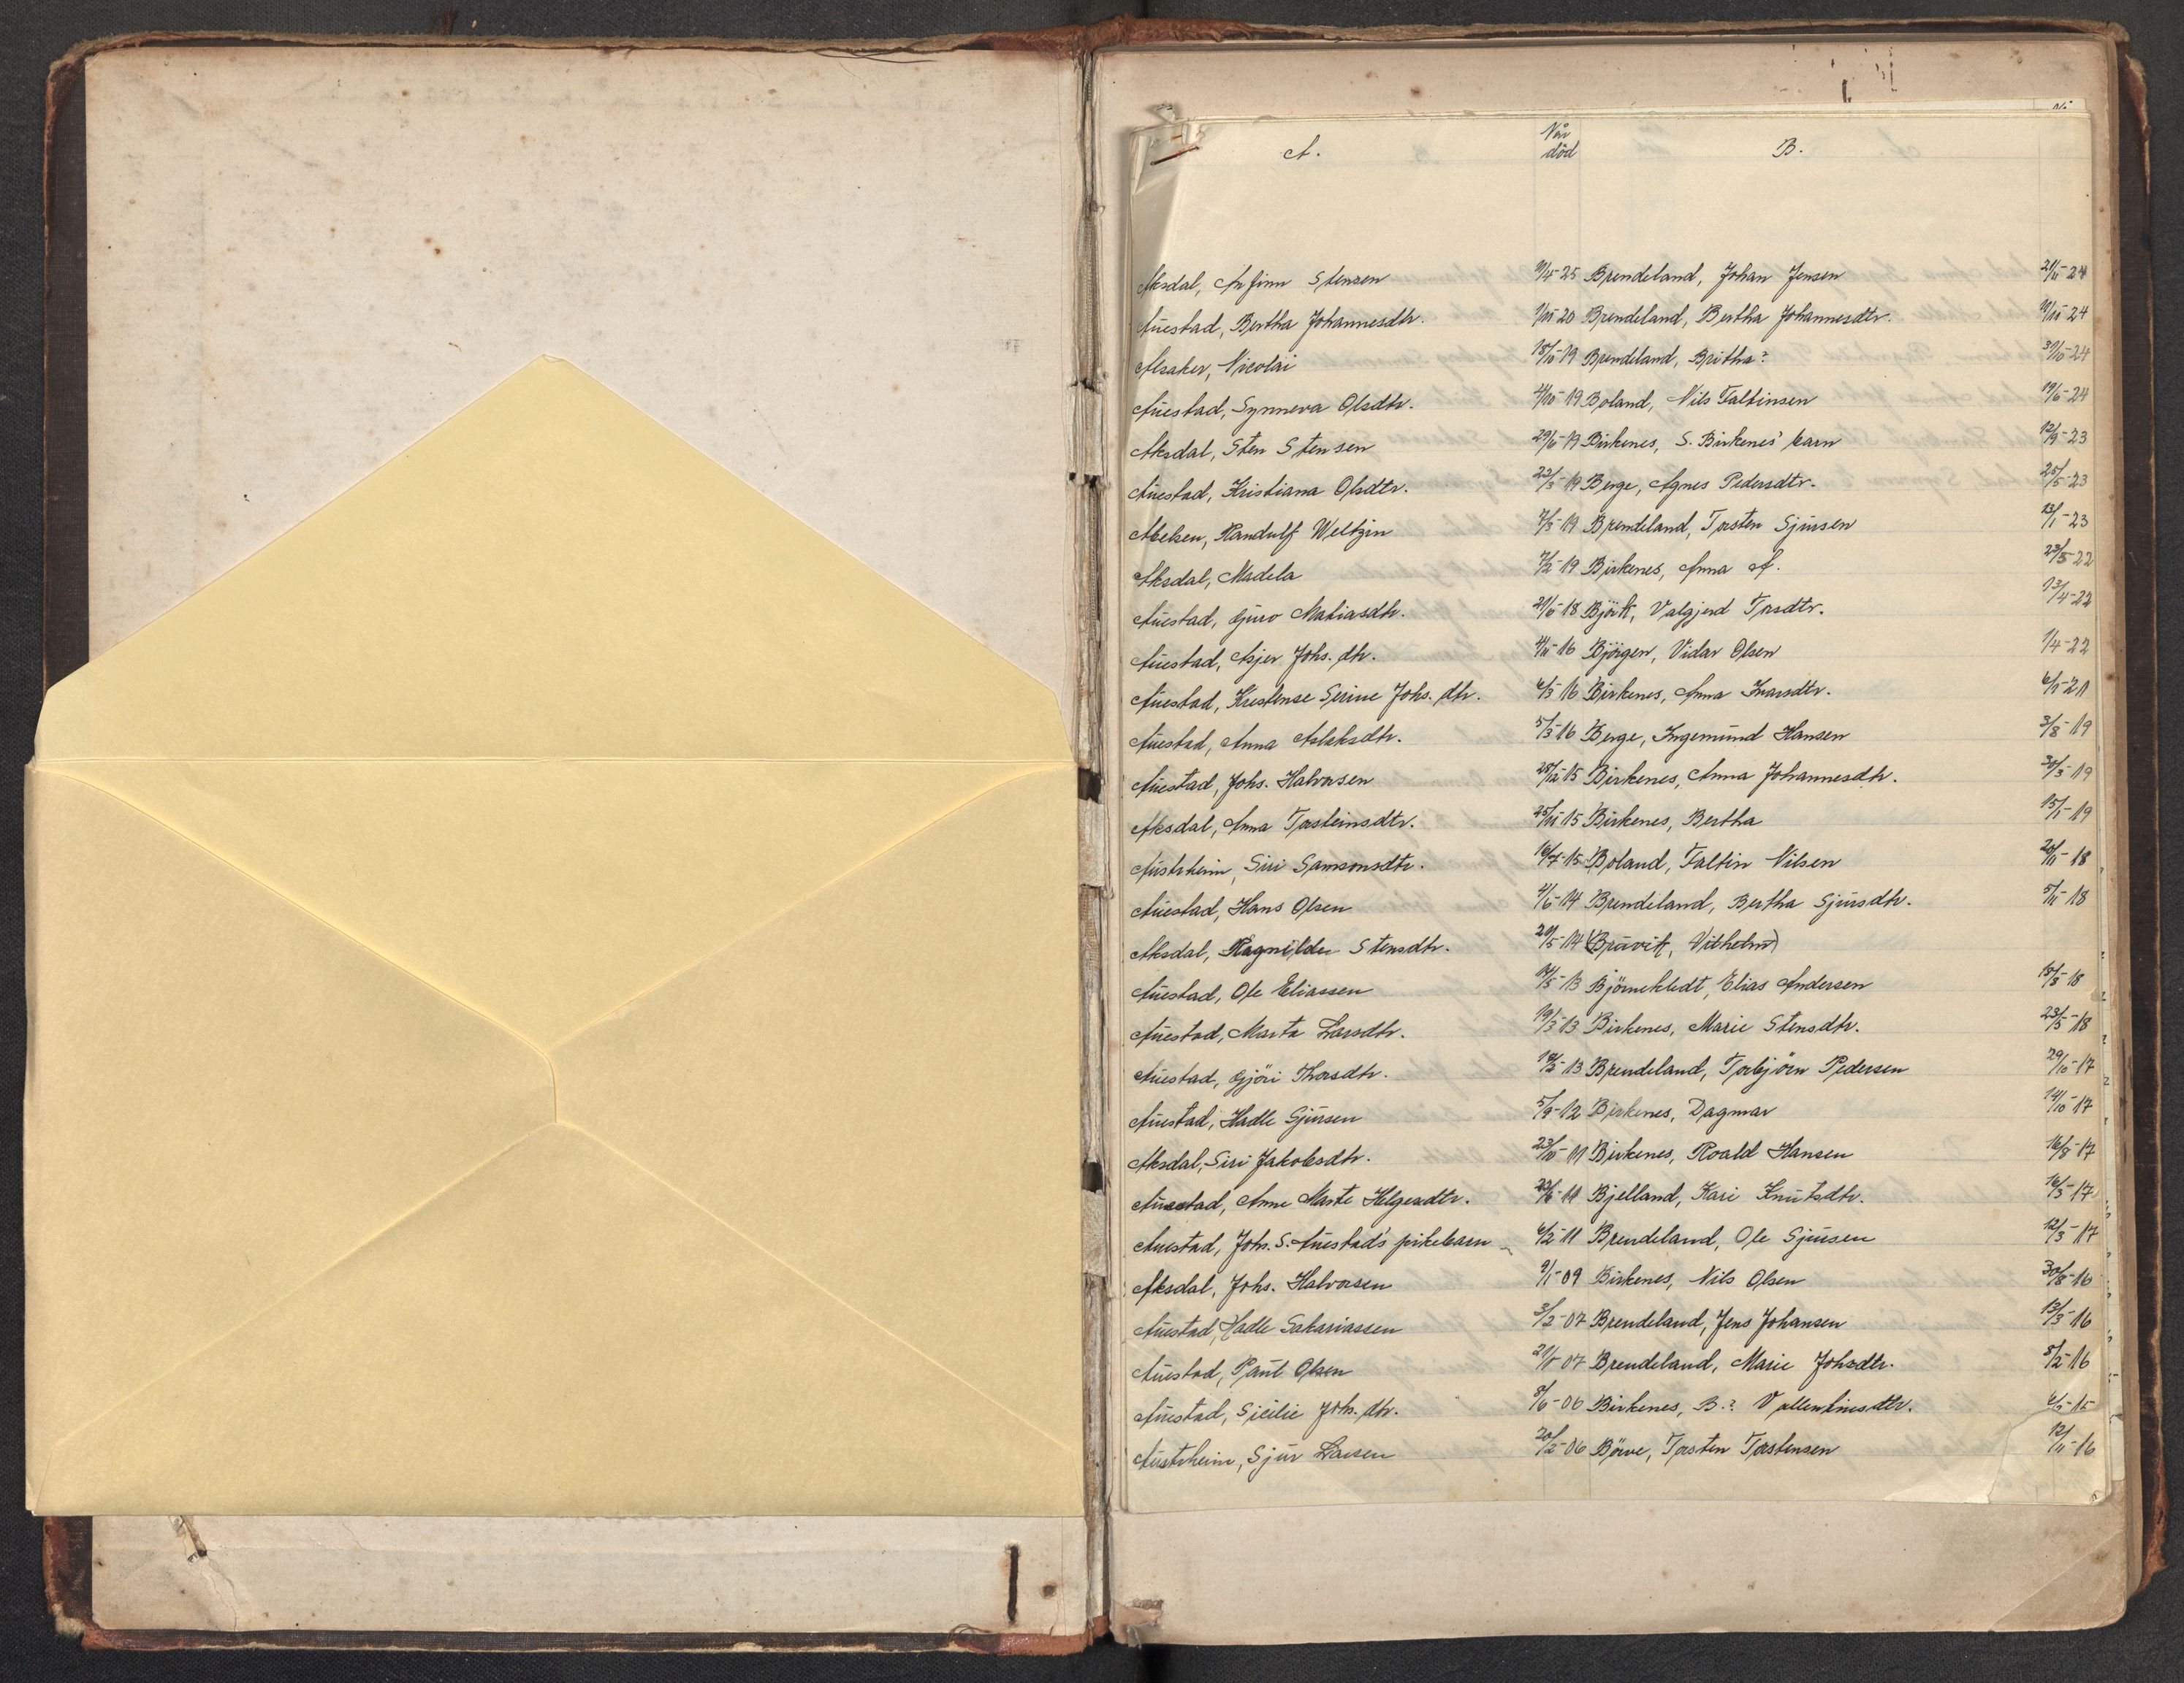 A. Når B.
død
Aksdal, Anfinn Stensen 9/4-25 Brendeland, Johan Jensen 21/11-24
Auestad, Bertha Johannesdtr. 1/10-20 Brendeland, Bertha Johannesdtr. 19/10-24
Alsaker, Nicolai 18/10-19 Brendeland, Britha? 30/10-24
Auestad, Synneva Olsdtr. 4/10-19 Boland, Nils Faltinsen 19/6-24
Aksdal, Sten Stensen 29/6-19 Birkenes, S. Birkenes' barn 12/9-23
Auestad, Kristiana Olsdtr. 22/3-19 Berge, Agnes Pedersdtr. 25/5-23
Abelsen, Randulf Weltzin 7/3-19 Brendeland, Torsten Sjursen 13/1-23
Aksdal, Madela 7/2-19 Birkenes, Anna A. 23/5-22
Auestad, Guro Matiasdtr. 21/6-18 Björk, Valgjerd Torsdtr. 13/4-22
Auestad, Asjer Johs. dtr. 4/11-16 Björgen, Vidar Olsen 1/4-22
Auestad, Kristense Serine Johs. dtr. 6/3-16 Birkenes, Anna Ivarsdtr. 6/1-21
Auestad, Anna Aslaksdtr. 5/3-16 Berge, Ingemund Hansen 3/8-19
Auestad, Johs. Halvorsen 28/12-15 Birkenes, Anna Johannesdtr. 30/3-19
Aksdal, Anna Torsteinsdtr. 25/10-15 Birkenes, Bertha 15/1-19
Austrheim, Siri Samsonsdtr. 16/7-15 Boland, Faltin Nilsen 20/11-18
Auestad, Hans Olsen 4/6-14 Brendeland, Bertha Sjursdtr. 5/11-18
Aksdal, Ragnilde Stensdtr. 20/5-14 (Bråvik, Vilhelm)
Auestad, Ole Eliassen 14/5-13 Björnekledt, Elias Andersen 18/8-18
Auestad, Marta Larsdtr. 19/3-13 Birkenes, Marie Stensdtr. 23/5-18
Auestad, Gjöri Thorsdtr. 18/2-13 Brendeland, Torbjörn Pedersen 29/10-17
Auestad, Hadle Sjursen 5/9-12 Birkenes, Dagmar 14/10-17
Aksdal, Siri Jakobsdtr. 23/10-11 Birkenes, Roald Hansen 16/8-17
Auestad, Anne Marte Helgesdtr. 23/6-11 Bjelland, Kari Knutsdtr. 16/3-17
Auestad, Johs. S. Auestad's pikebarn 6/2-11 Brendeland, Ole Sjursen 12/3-17
Aksdal, Johs. Halvorsen 9/1-09 Birkenes, Nils Olsen 30/8-16
Auestad, Hadle Sakariassen 3/2-07 Brendeland, Jens Johansen 13/3-16
Auestad, Paul Olsen 21/1-07 Brendeland, Marie Johsdtr. 8/2-16
Auestad, Sicilie Joh. dtr. 8/6-06 Birkenes, B.? Vallentinsdtr. 6/7-15
Austrheim, Sjur Larsen 20/2-06 Börve, Torsten Torstensen 12/11-16